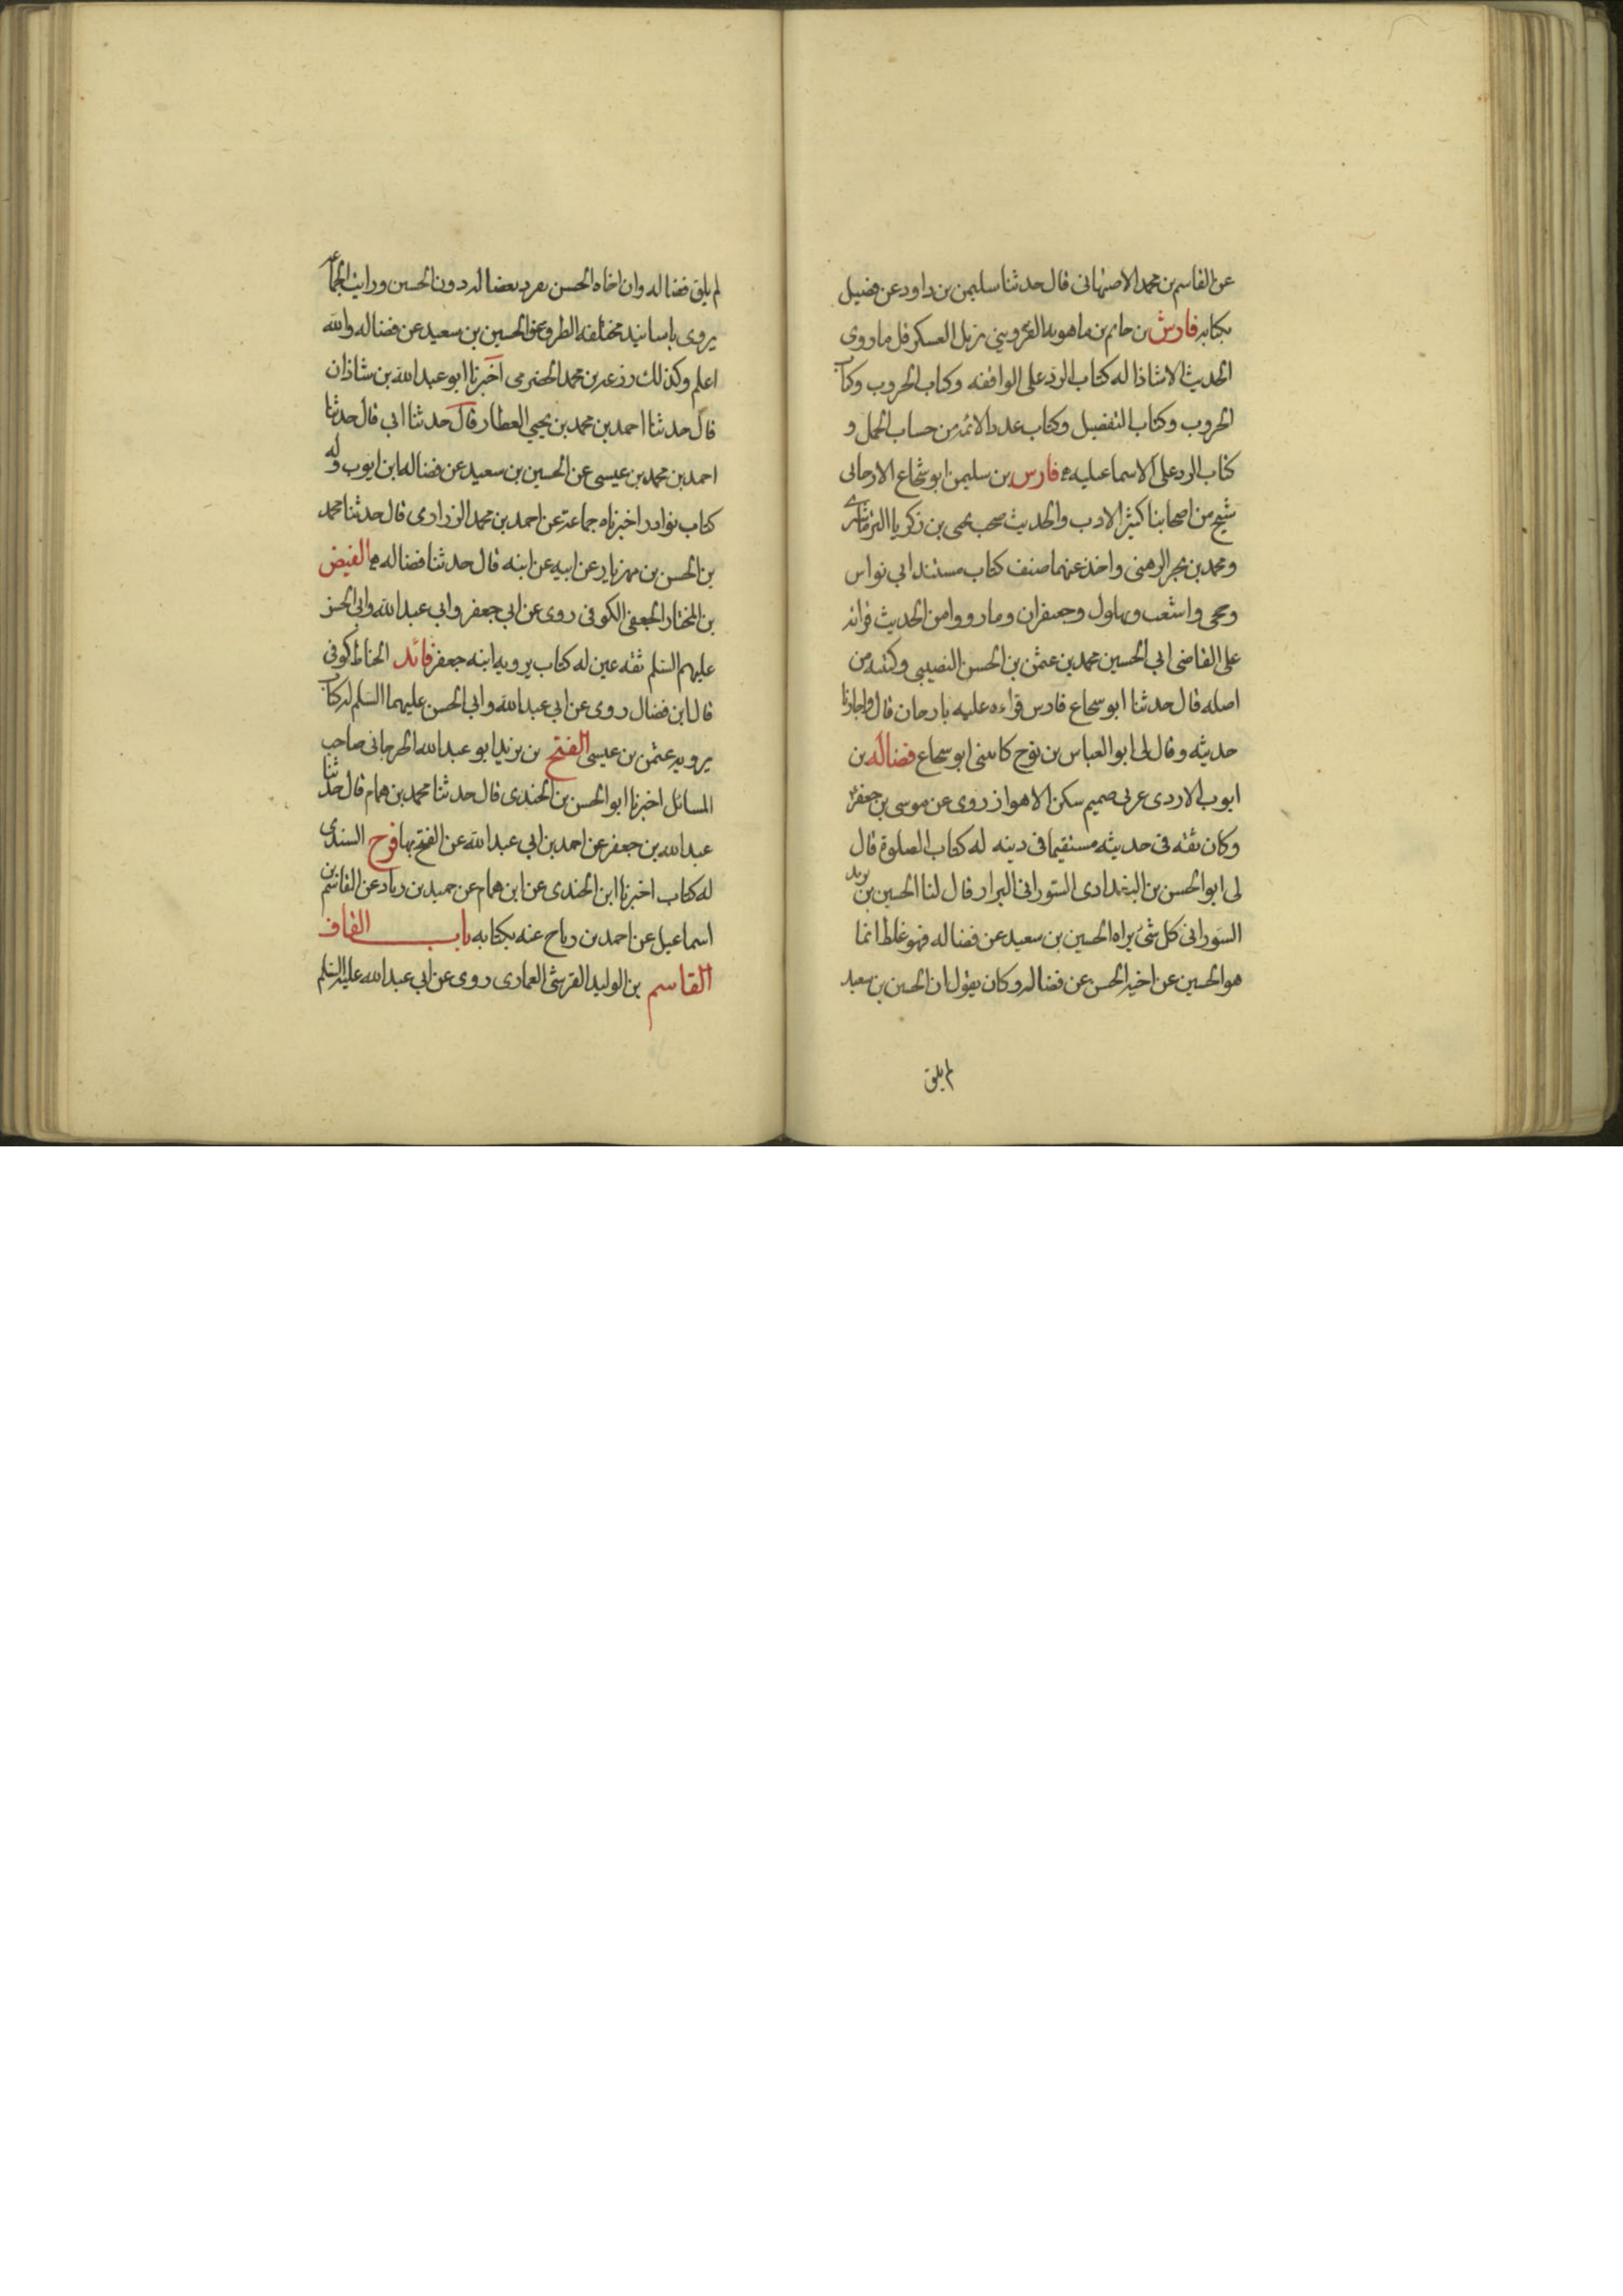 عن القاسم بن محمد الاصبهانى قال حدثنا سليمن بن داود عن فضيل
بكتابه فارس بن حاتم بن ماهويه القزوينى نزيل العسكر قل ما روى
الحديث الا شاذا له كتاب الرد على الواقفه وكتاب الحروب وكتاب
الحروب وكتاب التفضيل وكتاب عدد الائمه من حساب الجمل و
كتاب الرد على الاسماعيليه فارس بن سليمن ابو شجاع الارجانى
شيخ من اصحابنا كثير الادب والحديث صحب يحيى بن زكريا الترماشيرى
ومحمد بن بحر الرهنى واخذ عنهما صنف كتاب مسند ابى نواس
وحجى واشعب وبهلول وجعيفران وما رووا من الحديث قراته
على القاضى ابى الحسين محمد بن عثمن بن الحسن النصيبى وكتبه من
اصله قال حدثنا ابو شجاع فارس قراءه عليه بارجان قال واجازنا
حديثه وقال لى ابو العباس بن نوح كاتبنى ابو شجاع فضاله بن
ايوب الازدى عربى صميم سكن الاهواز روى عن موسى بن جعفر
وكان ثقه فى حديثه مستقيما فى دينه له كتاب الصلوة قال
لى ابو الحسن بن البغدادى السورانى البزاز قال لنا الحسين بن يزيد
السورانى كل شئ يراه الحسين بن سعيد عن فضاله فهو غلط انما
هو الحسين عن اخيه الحسن عن فضاله وكان يقول ان الحسين بن سعيد
لم يلق
لم يلق فضاله وان اخاه الحسن تفرد بفضاله دون الحسين ورايت الجماعة
يروى باسانيد مختلفه الطرق عن الحسين بن سعيد عن فضاله والله
اعلم وكذلك زرعه بن محمد الحضرمى اخبرنا ابو عبد الله بن شاذان
قال حدثنا احمد بن محمد بن يحيى العطار قال حدثنا ابى قال حدثنا
احمد بن محمد بن عيسى عن الحسين بن سعيد عن فضاله ابن ايوب وله
كتاب نوادر اخبرناه جماعة عن احمد بن محمد الزرارى قال حدثنا محمد
بن الحسن بن مهزيار عن ابيه عن ابنه قال حدثنا فضاله الفيض
بن المختار الجعفى الكوفى روى عن ابى جعفر وابى عبد الله وابى الحسن
عليهم السلم ثقه عين له كتاب يرويه ابنه جعفر فائد الحناط كوفى
قال ابن فضال روى عن ابى عبد الله وابى الحسن عليهما السلم له كتاب
يرويه عثمن بن عيسى الفتح بن يزيد ابو عبد الله الجرجانى صاحب
المسائل اخبرنا ابو الحسن بن الجندى قال حدثنا محمد بن همام قال حدثنا
عبد الله بن جعفر عن احمد بن ابى عبد الله عن الفتح بها فرج السندى
له كتاب اخبرنا ابن الجندى عن ابن همام عن حميد بن زياد عن القاسم بن
اسماعيل عن احمد بن رباح عنه بكتابه باب القاف
القاسم بن الوليد القرشى العمارى روى عن ابى عبد الله عليه السلم